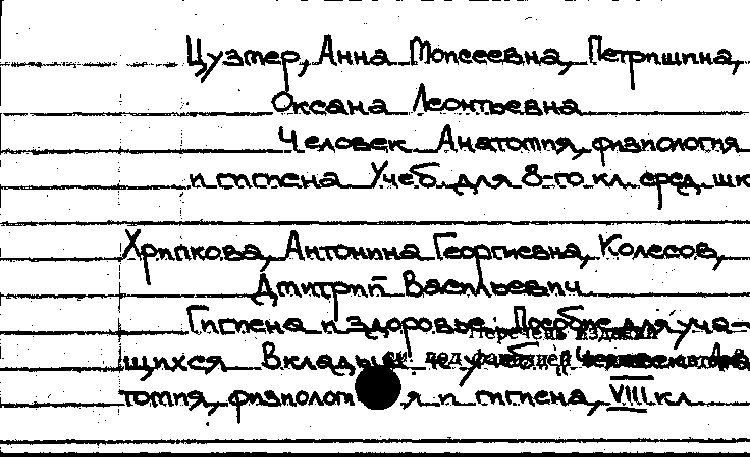 Цузмер, Анна Моисеевна, Петришина,
Оксана Леонтьевна
Человек Анатомия, физиология
и гигиена Учеб. для 8-го кл. сред. шк
Хрипкова, Антонина Георгиевна, Колесов,
Дмитрий Васильевич
Гигиена и здоровье: Пособие для уча-
Перечень изданий
щихся Вкладыш к уч
см. под фамилией
томия, физиологи я и гигиена, VIII кл.